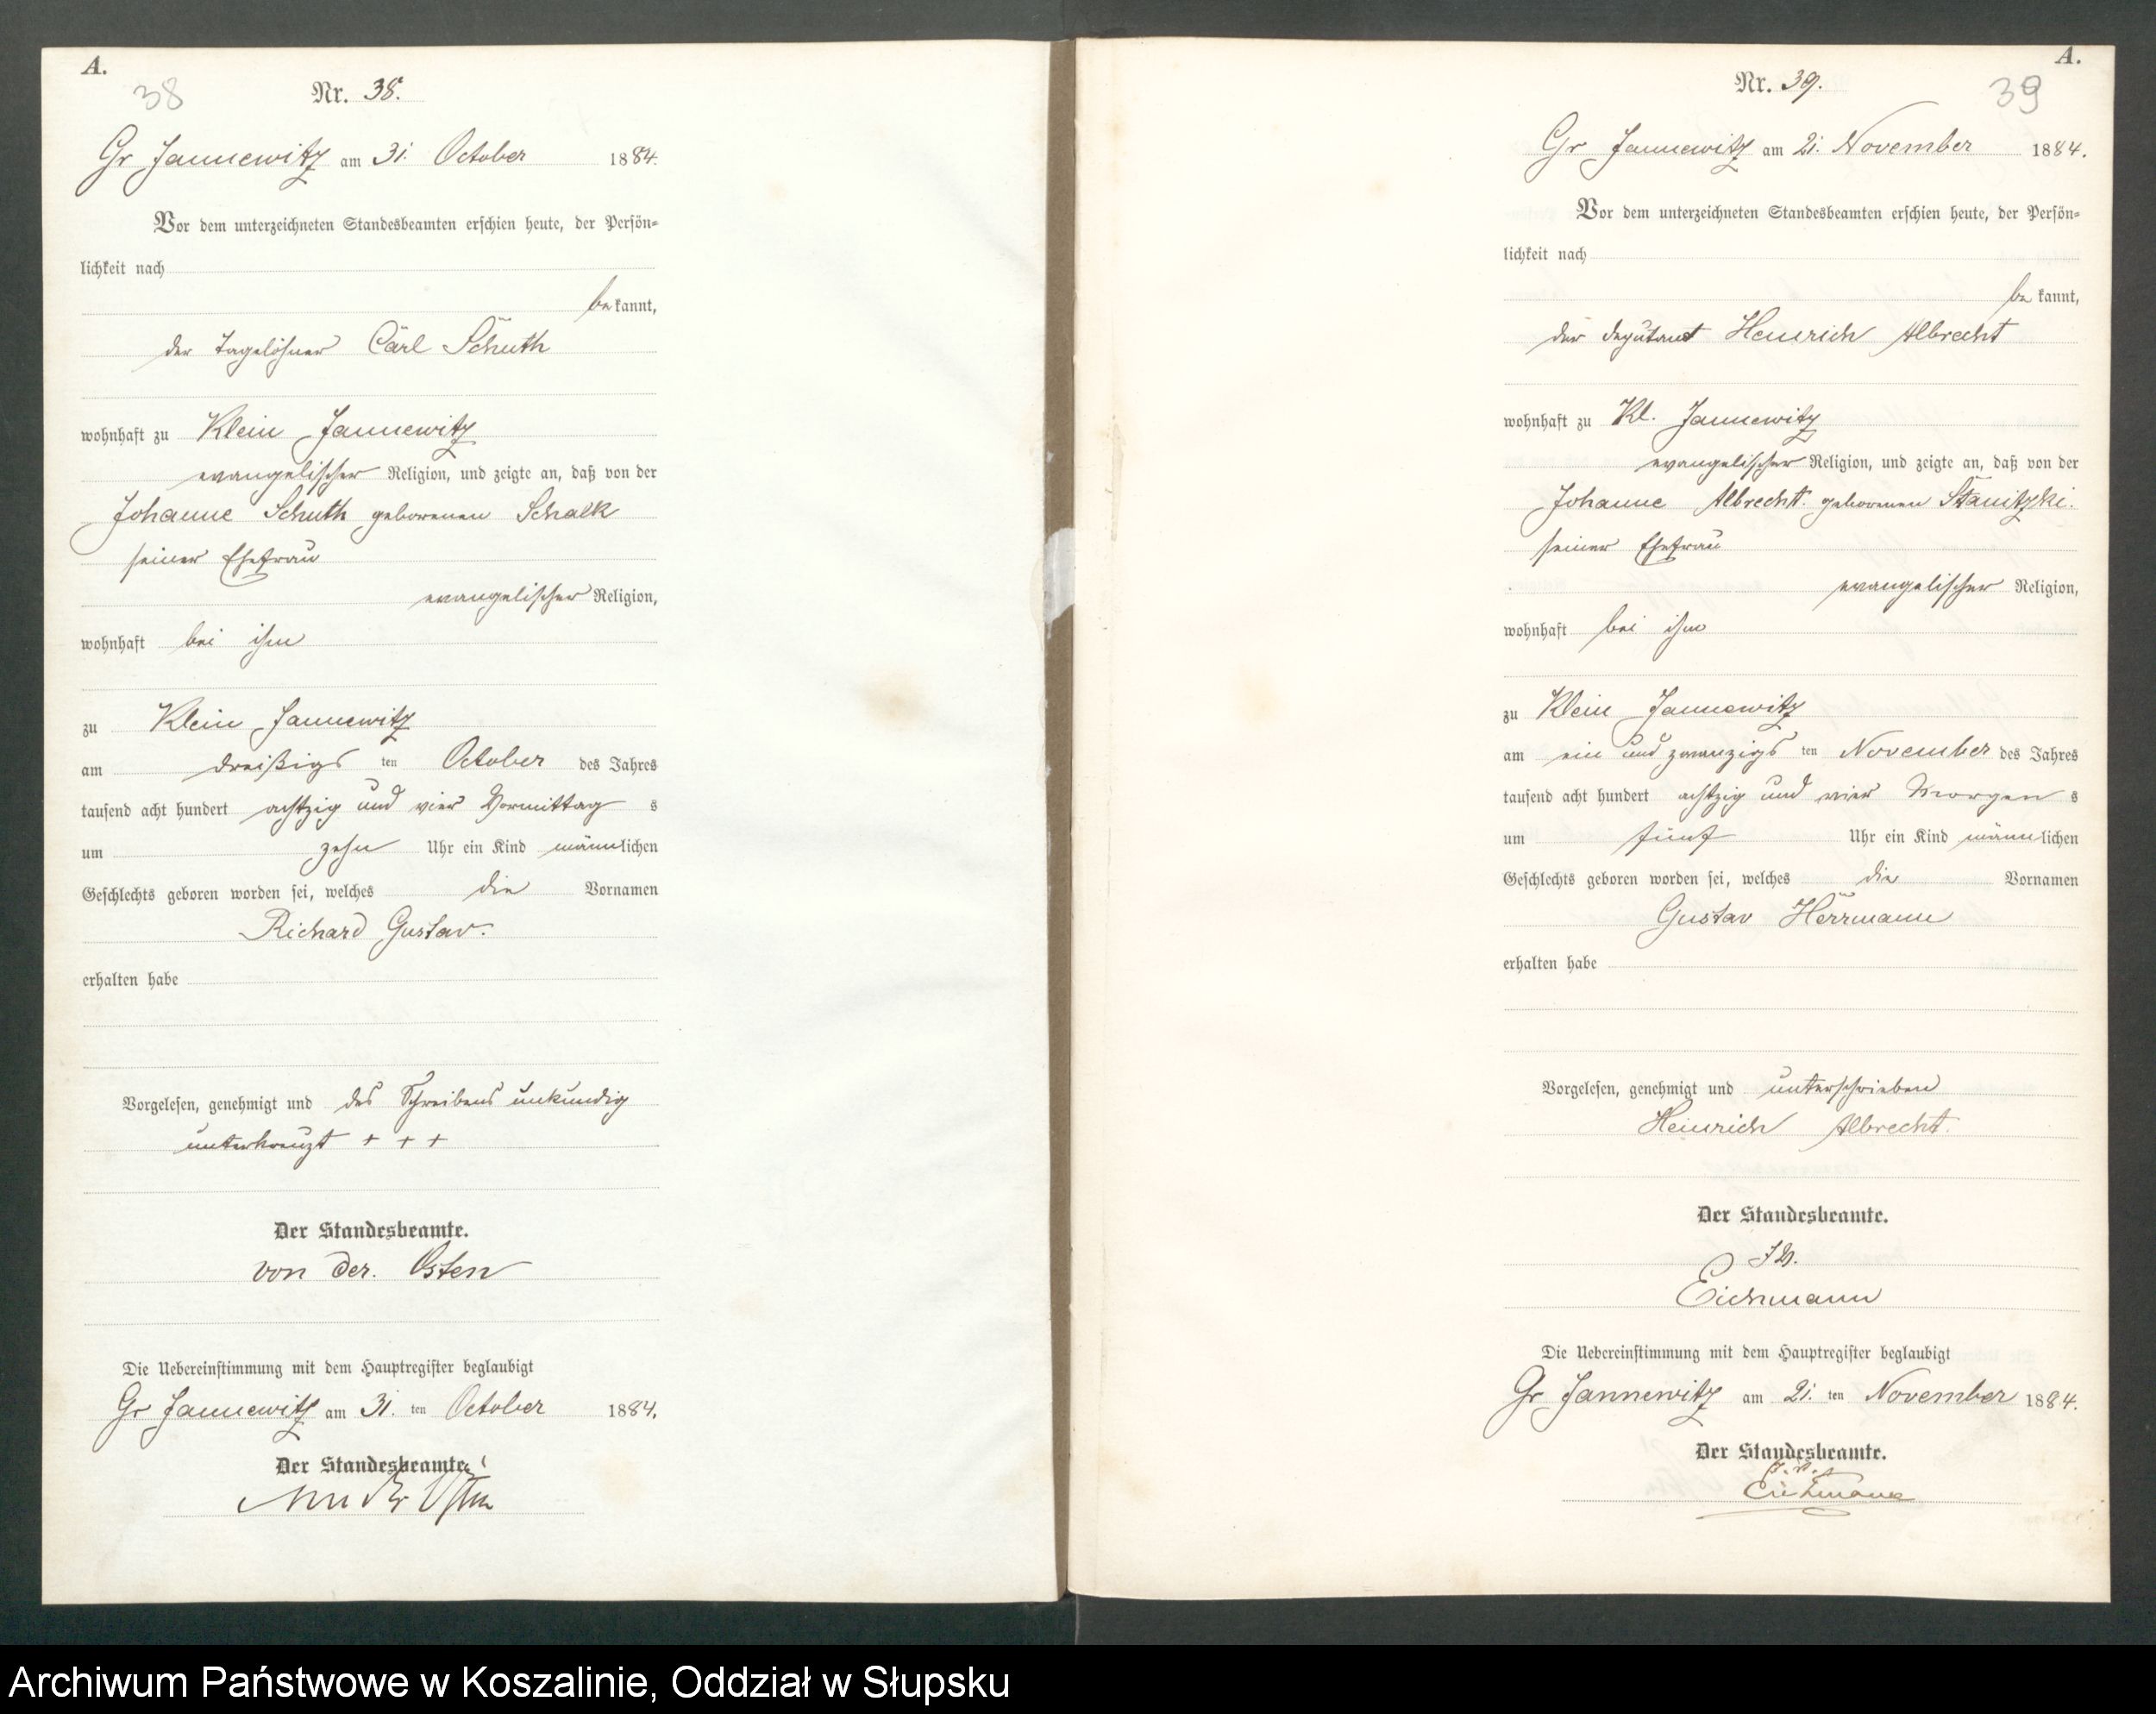 A.
38
Nr. 38.
Gr Jannewitz am 31. October 1884.
Vor dem unterzeichneten Standesbeamten erschien heute, der Persön-
lichkeit nach
bekannt,
der Tagelöhner Carl Schuth
wohnhaft zu Klein Jannewitz
evangelischer Religion, und zeigte an, daß von der
Johanne Schuth geborenen Schalk
seiner Ehefrau
evangelischer Religion,
wohnhaft bei ihm
zu Klein Jannewitz
am dreißigs ten October des Jahres
tausend acht hundert achtzig und vier Vormittag s
um zehn Uhr ein Kind männlichen
Geschlechts geboren worden sei, welches die Vornamen
Richard Gustav.
erhalten habe
Vorgelesen, genehmigt und des Schreibens unkundig
unterkreuzt + + +
Der Standesbeamte.
von der. Osten
Die Uebereinstimmung mit dem Hauptregister beglaubigt
Gr Jannewitz am 31. ten October 1884.
Der Standesbeamte.
von der Osten
A.
39
Nr. 39.
Gr Jannewitz am 21. November 1884.
Vor dem unterzeichneten Standesbeamten erschien heute, der Persön-
lichkeit nach
be kannt,
der Deputant Heinrich Albrecht
wohnhaft zu Kl. Jannewitz
evangelischer Religion, und zeigte an, daß von der
Johanne Albrecht geborenen Stanitzki.
seiner Ehefrau
evangelischer Religion,
wohnhaft bei ihm
zu Klein Jannewitz
am ein und zwanzigs ten November des Jahres
tausend acht hundert achtzig und vier Morgen s
um fünf Uhr ein Kind männlichen
Geschlechts geboren worden sei, welches die Vornamen
Gustav Herrmann
erhalten habe
Vorgelesen, genehmigt und unterschrieben
Heinrich Albrecht.
Der Standesbeamte.
I V.
Eichmann
Die Uebereinstimmung mit dem Hauptregister beglaubigt
Gr Jannewitz am 21. ten November 1884.
Der Standesbeamte.
I. V.
Eichmann
Archiwum Państwowe w Koszalinie, Oddział w Słupsku